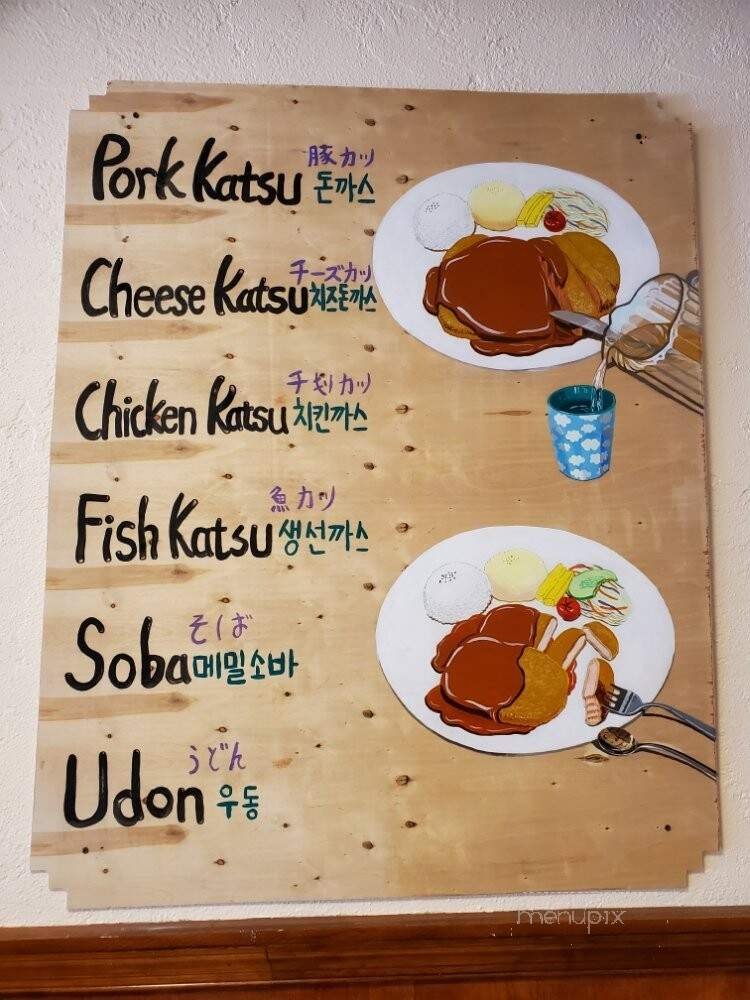 Pork Katsu 豚カツ
돈까스
Cheese Katsu チーズカツ
치즈돈까스
Chicken Katsu カツ
치킨까스
Fish Katsu 魚カツ
생선까스
Soba そば
메밀소바
Udon うどん
우동
menupix